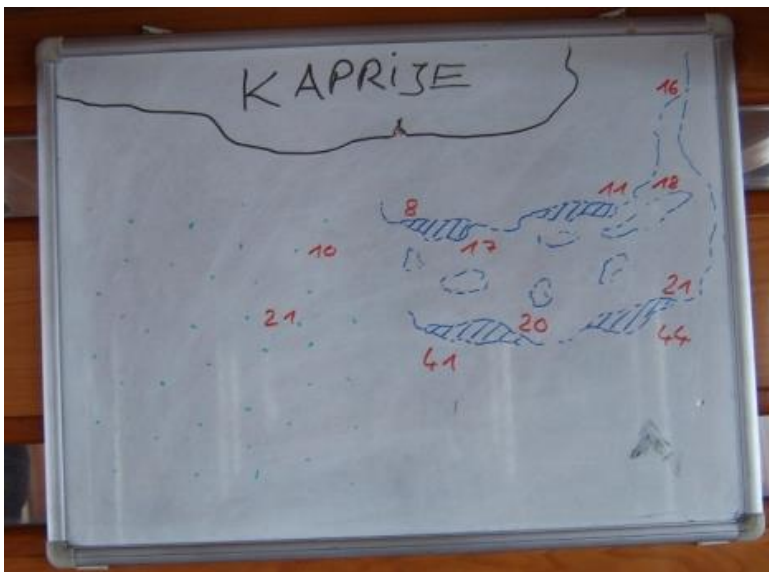 KAPRIJE
16
8
11 18
10
17
21
21
20
41
44